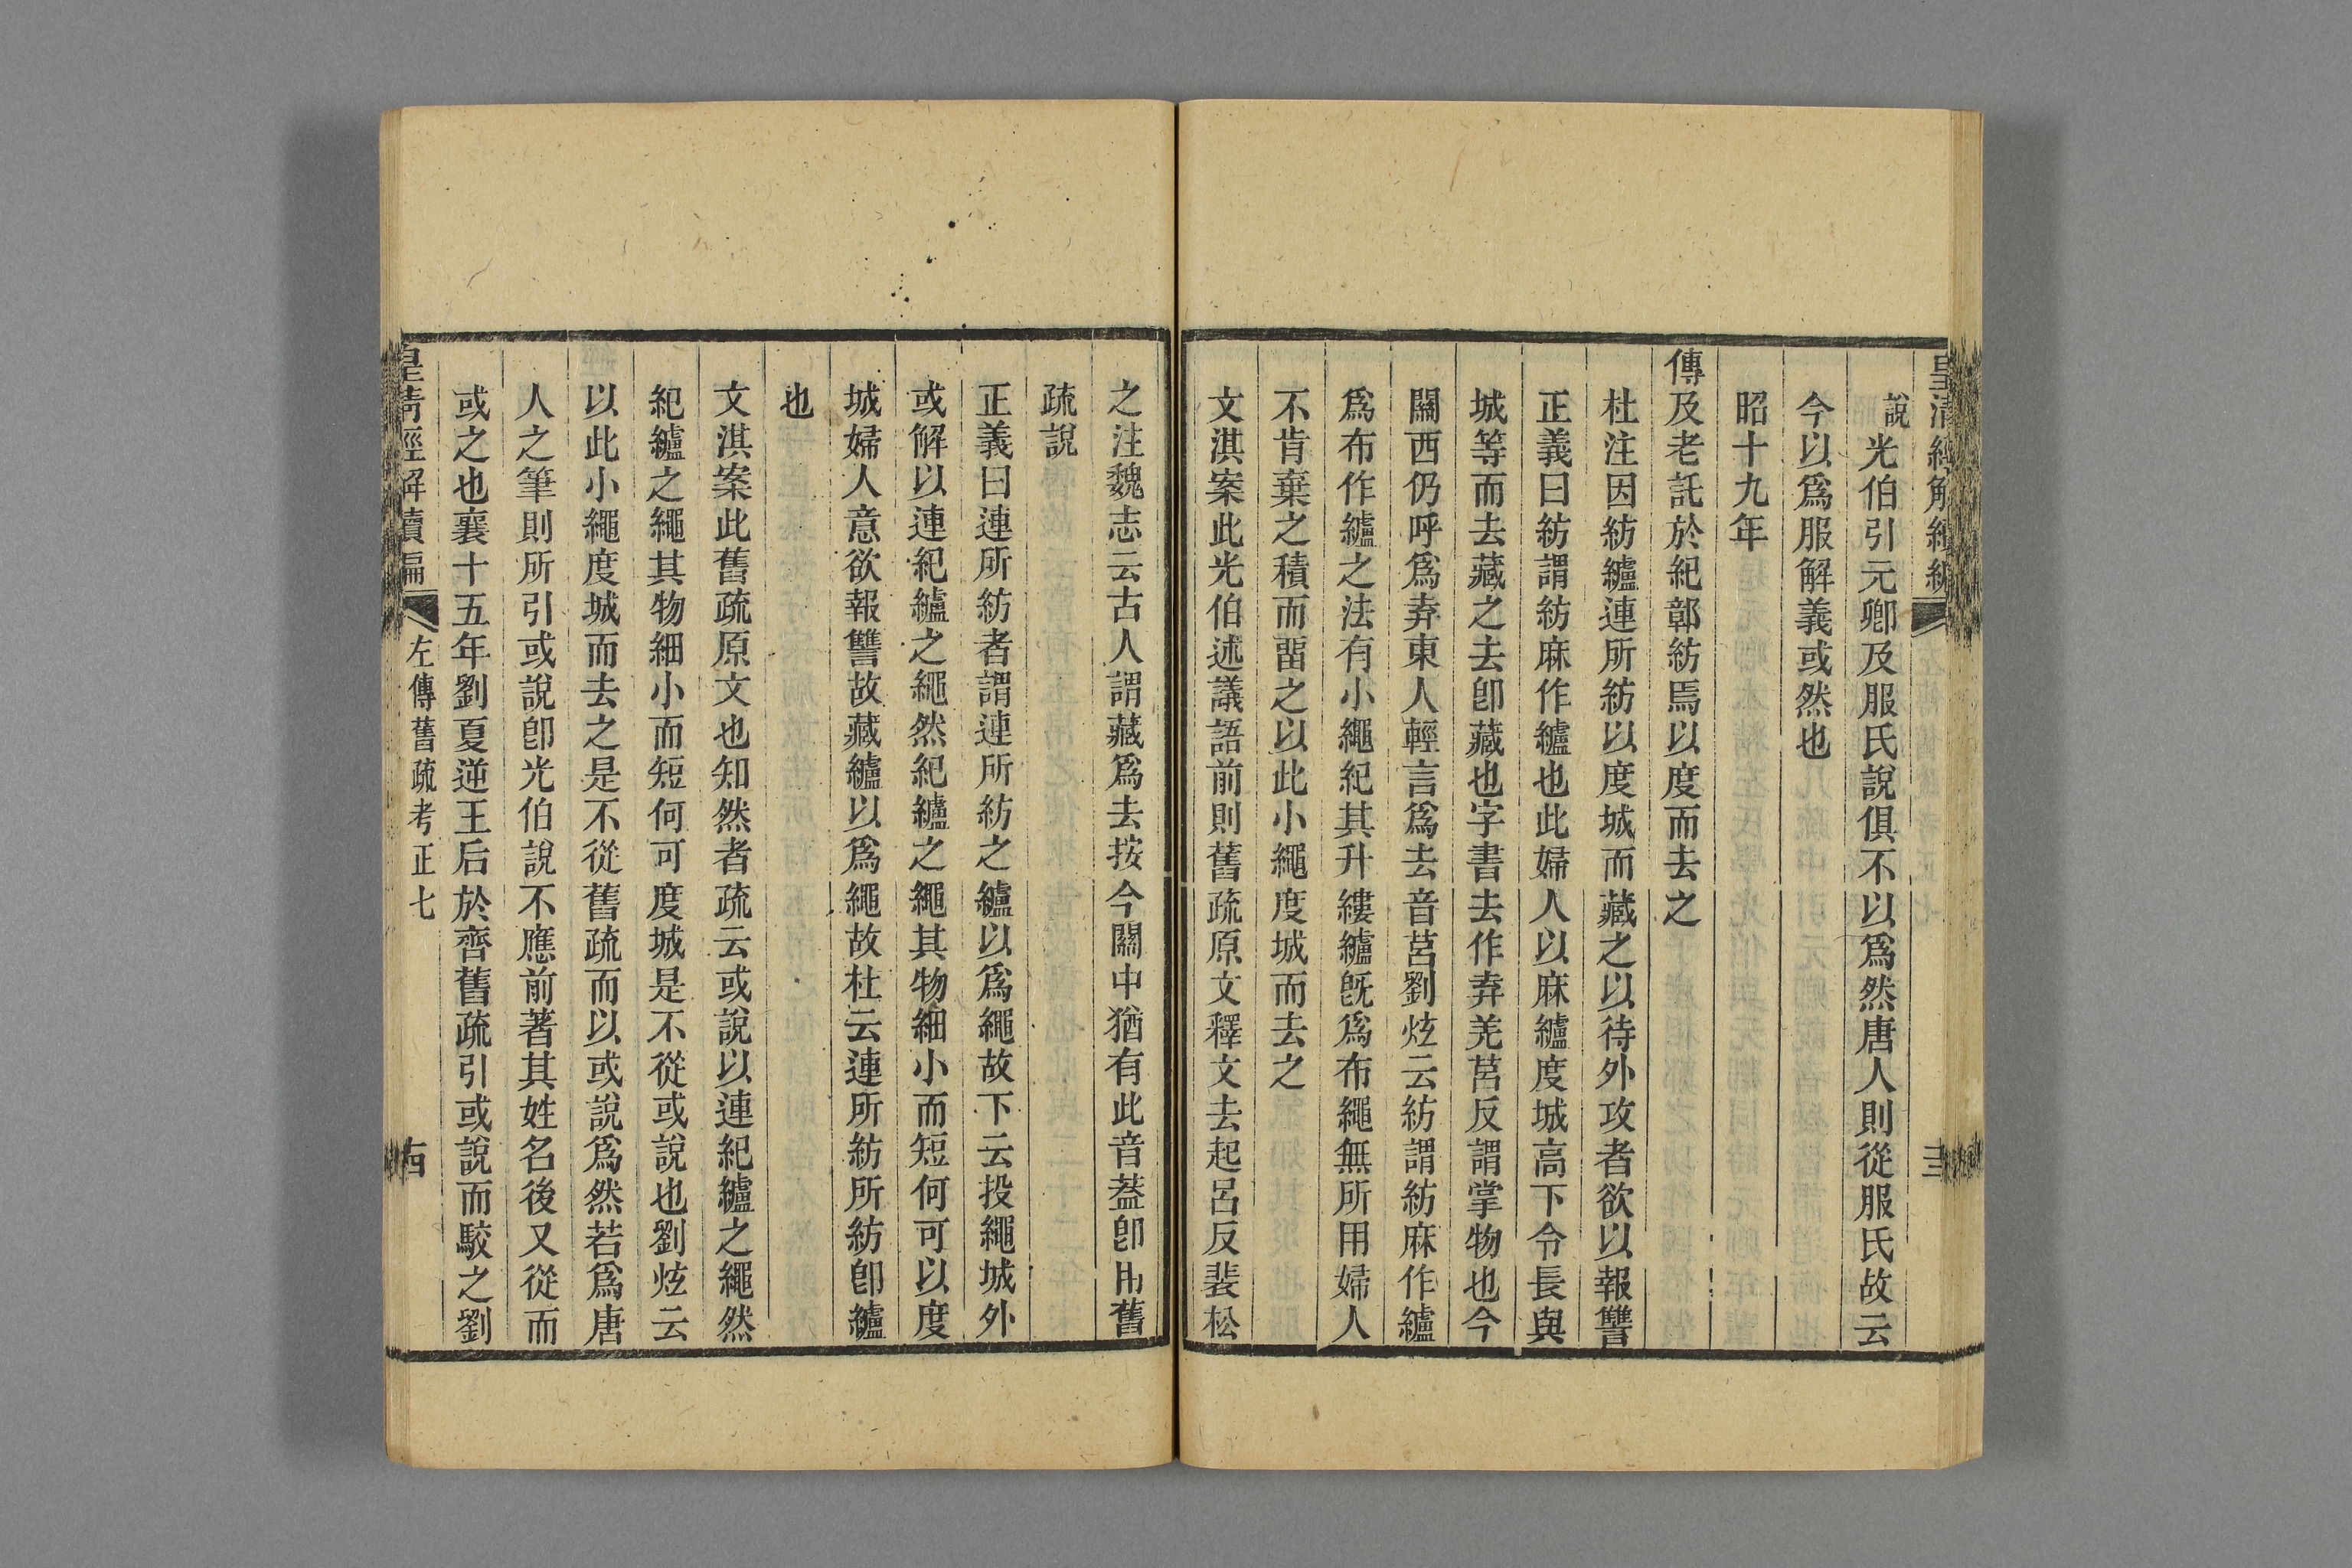 皇清經解續編
說光伯引元卿及服氏說俱不以爲然唐人則從服氏故云
今以爲服解義或然也
昭十九年
傳及老託於紀鄣紡焉以度而去之
杜注因紡纑連所紡以度城而藏之以待外攻者欲以報讐
正義曰紡謂紡麻作纑也此婦人以麻纑度城高下令長與
城等而去藏之去卽藏也字書去作弆羌莒反謂掌物也今
關西仍呼爲弆東人輕言爲去音莒劉炫云紡謂紡麻作纑
爲布作纑之法有小繩紀其升縷纑旣爲布繩無所用婦人
不肯棄之積而畱之以此小繩度城而去之
文淇案此光伯述議語前則舊疏原文釋文去起呂反裴松
之注魏志云古人謂藏爲去按今關中猶有此音蓋卽用舊
疏說
正義曰連所紡者謂連所紡之纑以爲繩故下云投繩城外
或解以連紀纑之繩然紀纑之繩其物細小而短何可以度
城婦人意欲報讐故藏纑以爲繩故杜云連所紡所紡卽纑
也
文淇案此舊疏原文也知然者疏云或說以連紀纑之繩然
紀纑之繩其物細小而短何可度城是不從或說也劉炫云
以此小繩度城而去之是不從舊疏而以或說爲然若爲唐
人之筆則所引或說卽光伯說不應前著其姓名後又從而
或之也襄十五年劉夏逆王后於齊舊疏引或說而駮之劉
皇清經解續編 左傳舊疏考正七